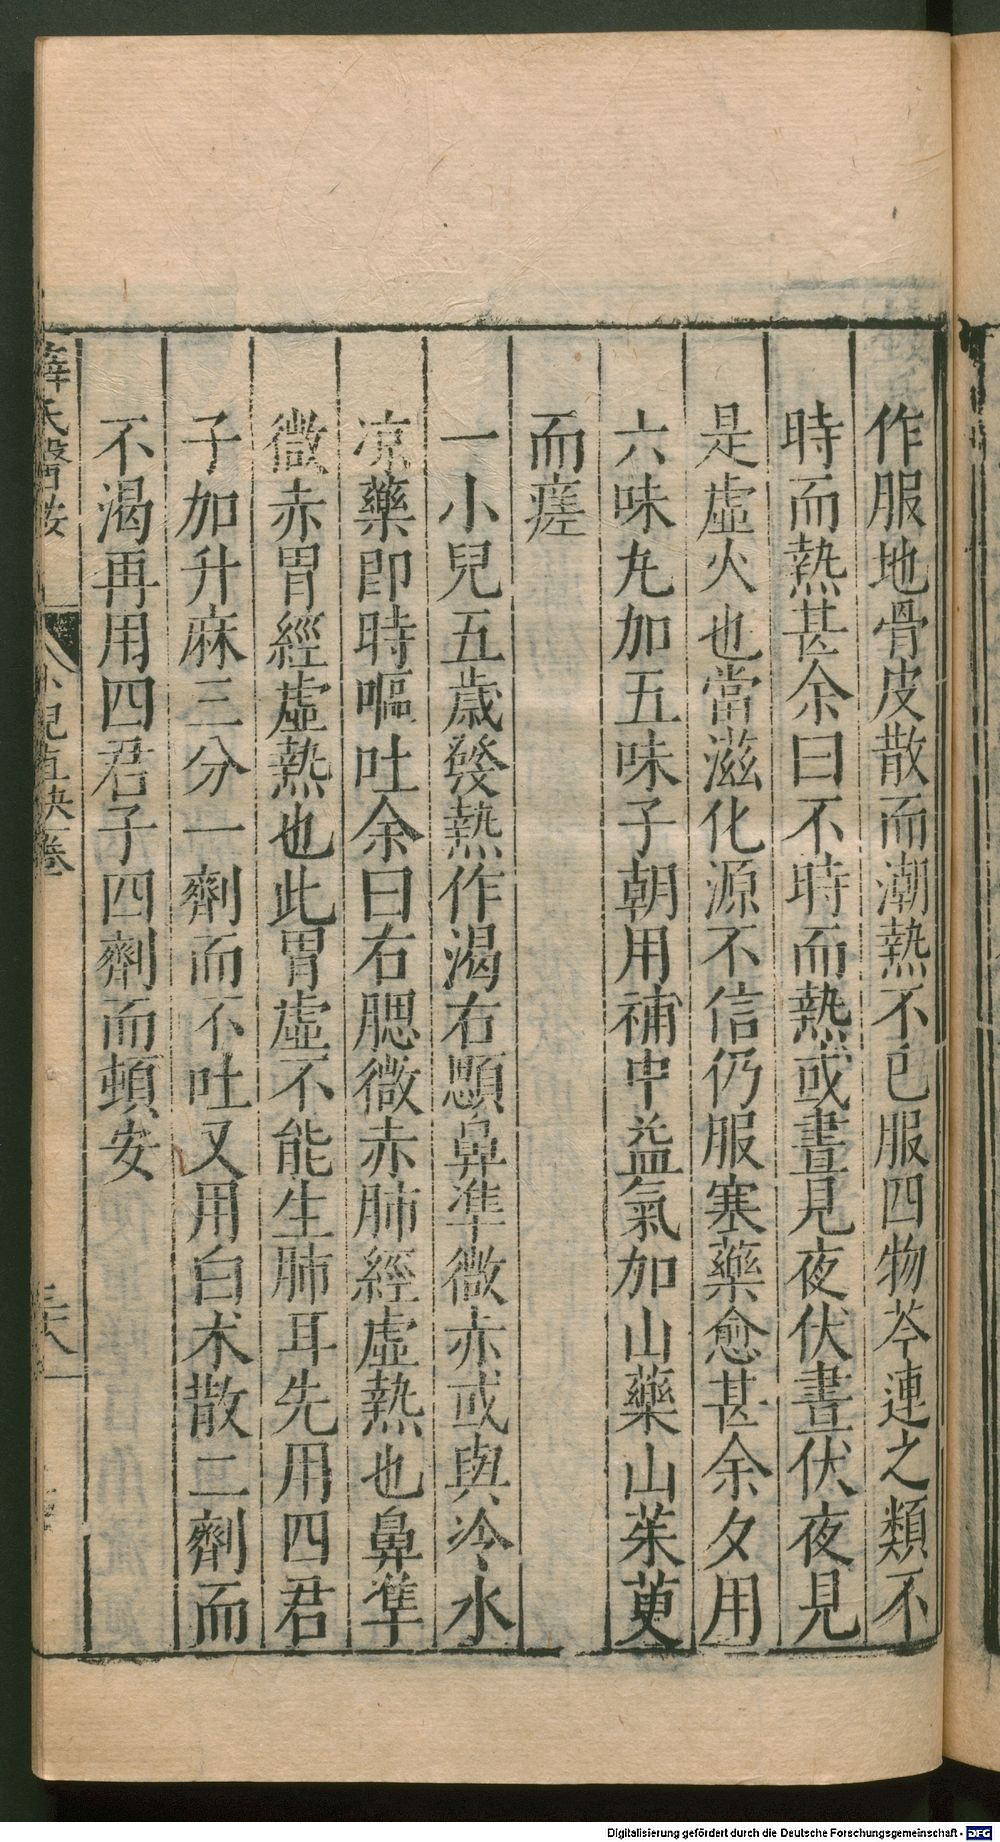 作服地骨皮散而潮熱不已服四物芩連之類不
時而熱甚余曰不時而熱或晝見夜伏晝伏夜見
是虛火也當滋化源不信仍服寒藥愈甚余夕用
六味丸加五味子朝用補中益氣加山藥山茱萸
而瘥
一小兒五歲發熱作渴右顋鼻準微赤或與冷水
凉藥即時嘔吐余曰右腮微赤肺經虛熱也鼻準
微赤胃經虛熱也此胃虛不能生肺耳先用四君
子加升麻三分一劑而不吐又用白朮散二劑而
不渴再用四君子四劑而頓安
薛氏醫按
小兒直訣卷
三六
Digitalisierung gefördert durch die Deutsche Forschungsgemeinschaft - DFG